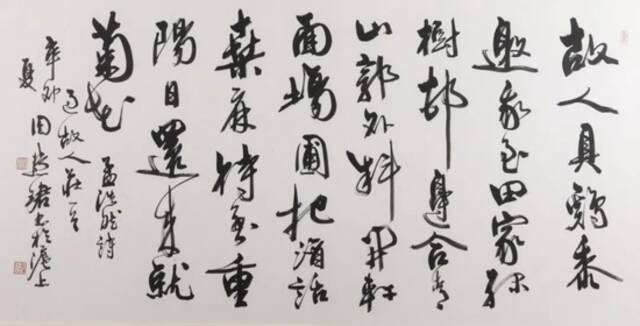 故人具鷄黍
邀我至田家綠
樹邨邊合青
山郭外斜開軒
面場圃把酒話
桑麻待到重
陽日還來就
菊花
孟浩然詩
過故人莊一首
辛卯
夏
周慧珺書於滬上